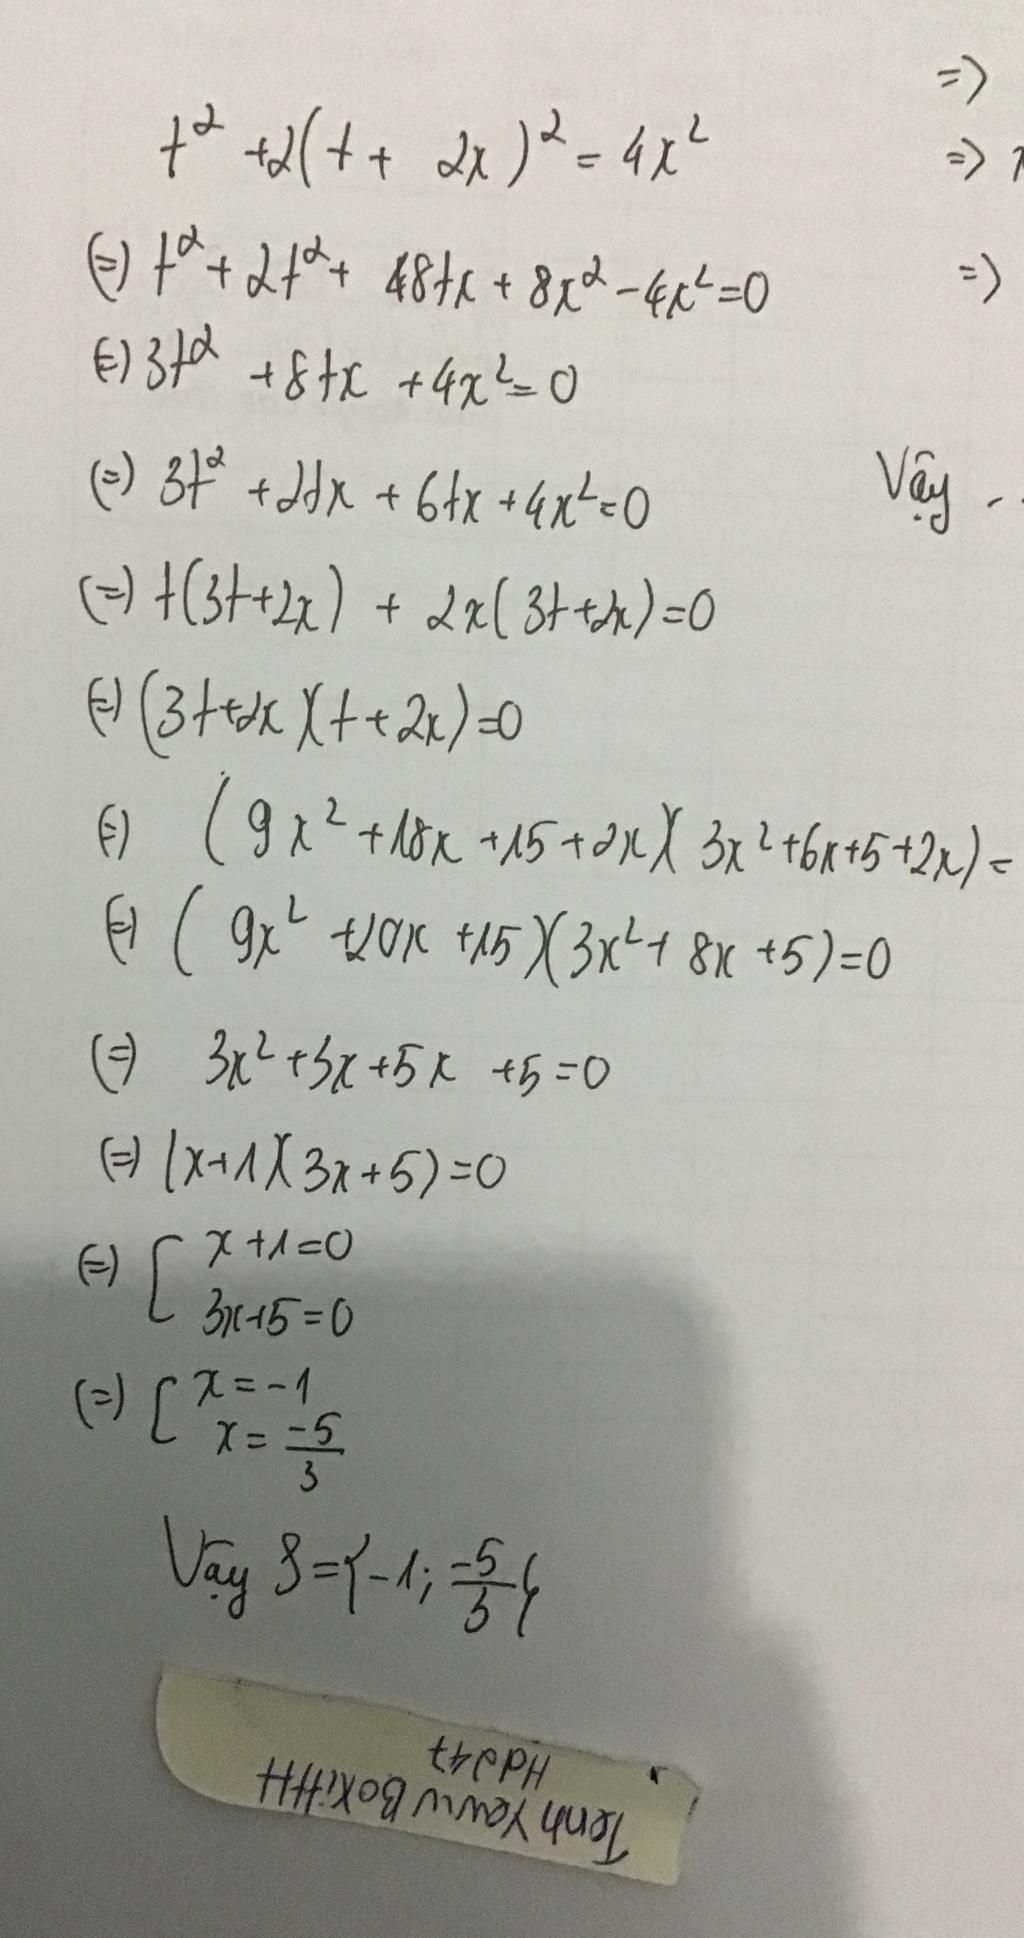 t² + 2(t + 2x)² = 4x²
(=) t² + 2t² + 8tx + 8x² - 4x² = 0
(=) 3t² + 8tx + 4x² = 0
(=) 3t² + 2tx + 6tx + 4x² = 0
(=) t(3t+2x) + 2x(3t+2x) = 0
(=) (3t+2x)(t+2x) = 0
(=) (9x² + 18x + 15 + 2x)(3x² + 6x + 5 + 2x) =
(=) (9x² + 20x + 15)(3x² + 8x + 5) = 0
(=) 3x² + 3x + 5x + 5 = 0
(=) (x+1)(3x+5) = 0
(=) [ x + 1 = 0
3x + 5 = 0
(=) [ x = -1
x = -5/3
Vậy S = {-1; -5/3}
=>
=>
=>
Vậy ..
Hdg247